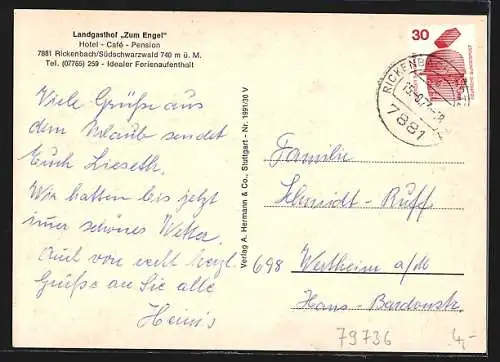 Landgasthof „Zum Engel"
Hotel - Café - Pension
7881 Rickenbach/Südschwarzwald 740 m ü. M.
Tel. (07765) 259 - Idealer Ferienaufenthalt
Viele Grüße aus
dem Urlaub sendet
Euch Lieseth.
Wir hatten bis jetzt
imer schönes Wetter.
Auch von mir herzl.
Grüße an Sie alle
Heini's
Verlag A. Hermann & Co., Stuttgart - Nr. 1991/30 V
30
DEUTSCHE BUNDESPOST
7881
Familie
Schmidt-Ruff
698 Wertheim a/M
Hans-Bardonstr.
79736
4,-